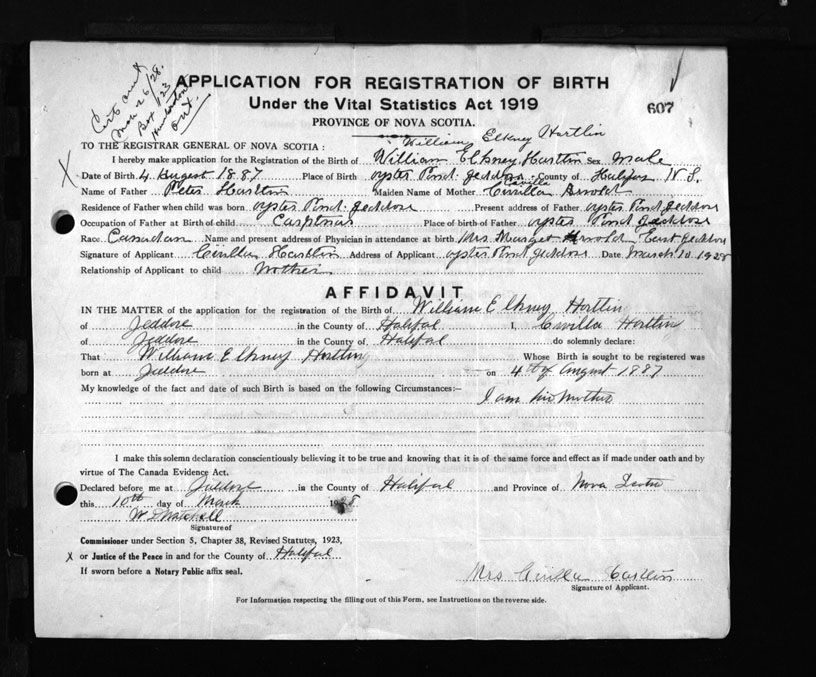 Cert sent
Mar 26/28.
Box 123
Ont.
APPLICATION FOR REGISTRATION OF BIRTH
Under the Vital Statistics Act 1919
607
PROVINCE OF NOVA SCOTIA.
William Elkney Hartlin
TO THE REGISTRAR GENERAL OF NOVA SCOTIA :
I hereby make application for the Registration of the Birth of William Elkney Hartlin Sex Male
X Date of Birth 4 August 1887 Place of Birth oyster Pond Jeddore County of Halifax N S.
Name of Father Peter Hartlin Maiden Name of Mother Civilla Arnold
Residence of Father when child was born oyster Pond Jeddore Present address of Father oyster Pond Jeddore
Occupation of Father at Birth of child Place of birth of Father oyster Pond Jeddore
Race Canadian Name and present address of Physician in attendance at birth Mrs Margret Arnold East Jeddore
Signature of Applicant Civilla Hartlin Address of Applicant oyster Pond Jeddore Date March 10 1928
Relationship of Applicant to child Mother
AFFIDAVIT
IN THE MATTER of the application for the registration of the Birth of William Elkney Hartling
of Jeddore in the County of Halifax I, Civilla Hartling
of Jeddore in the County of Halifax do solemnly declare:
That William Elkney Hartling Whose Birth is sought to be registered was
born at Jeddore on 4th of August 1887
My knowledge of the fact and date of such Birth is based on the following Circumstances:—
I am his Mother
I make this solemn declaration conscientiously believing it to be true and knowing that it is of the same force and effect as if made under oath and by
virtue of The Canada Evidence Act.
Declared before me at Jeddore in the County of Halifax and Province of Nova Scotia
this 10th day of March 1928
Signature of
Commissioner under Section 5, Chapter 38, Revised Statutes, 1923,
X or Justice of the Peace in and for the County of Halifax
If sworn before a Notary Public affix seal.
Mrs Civilla Hartlin
Signature of Applicant.
For Information respecting the filling out of this Form, see Instructions on the reverse side.